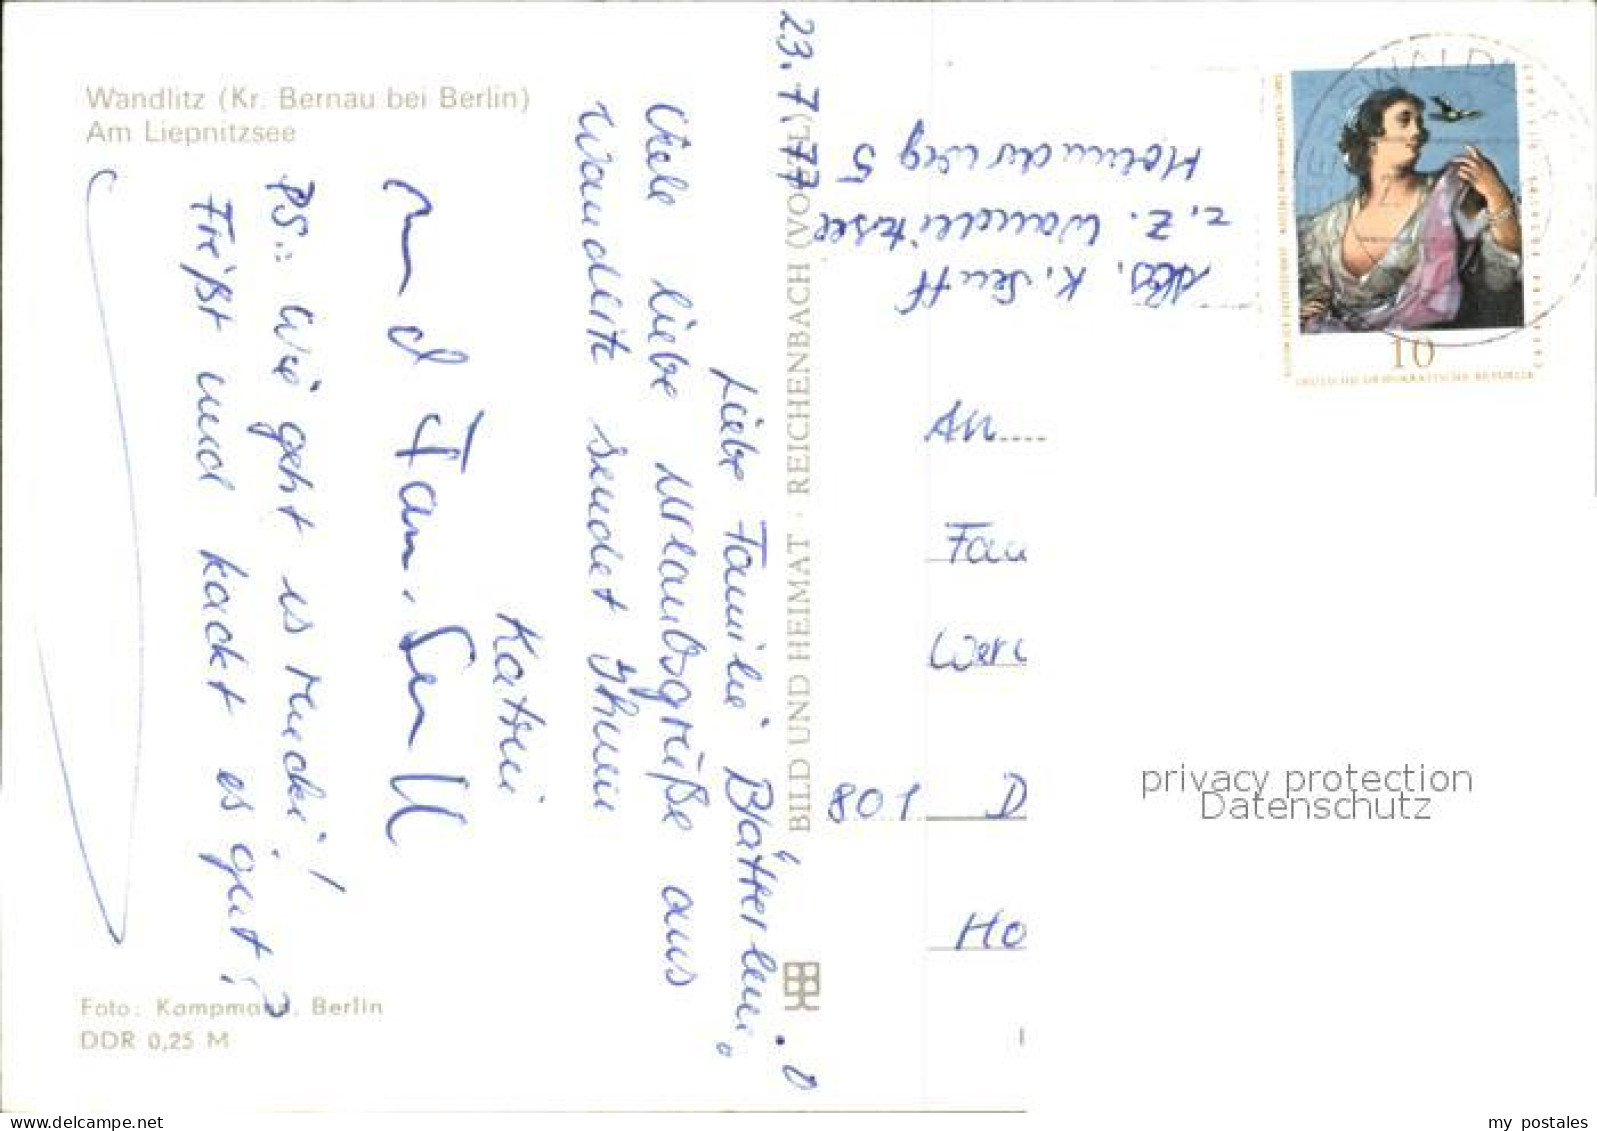 Wandlitz (Kr. Bernau bei Berlin)
Am Liepnitzsee
23. 7. 77
Liebe Familie Blätterlein,
Viele liebe Urlaubsgrüße aus
Wandlitz sendet Ihnen
Katrin
und Fam. Senff
PS.: Wie geht es Mucki!
Frißt und kackt es gut?
Foto: Kampmann, Berlin
DDR 0,25 M
BILD UND HEIMAT · REICHENBACH (VOGTL)
Abs. K. Senff
z. Z. Wandlitzsee
weg 5
10
DEUTSCHE DEMOKRATISCHE REPUBLIK
An
Fam
Wer
801 D
HO
privacy protection
Datenschutz
my postales
www.delcampe.net